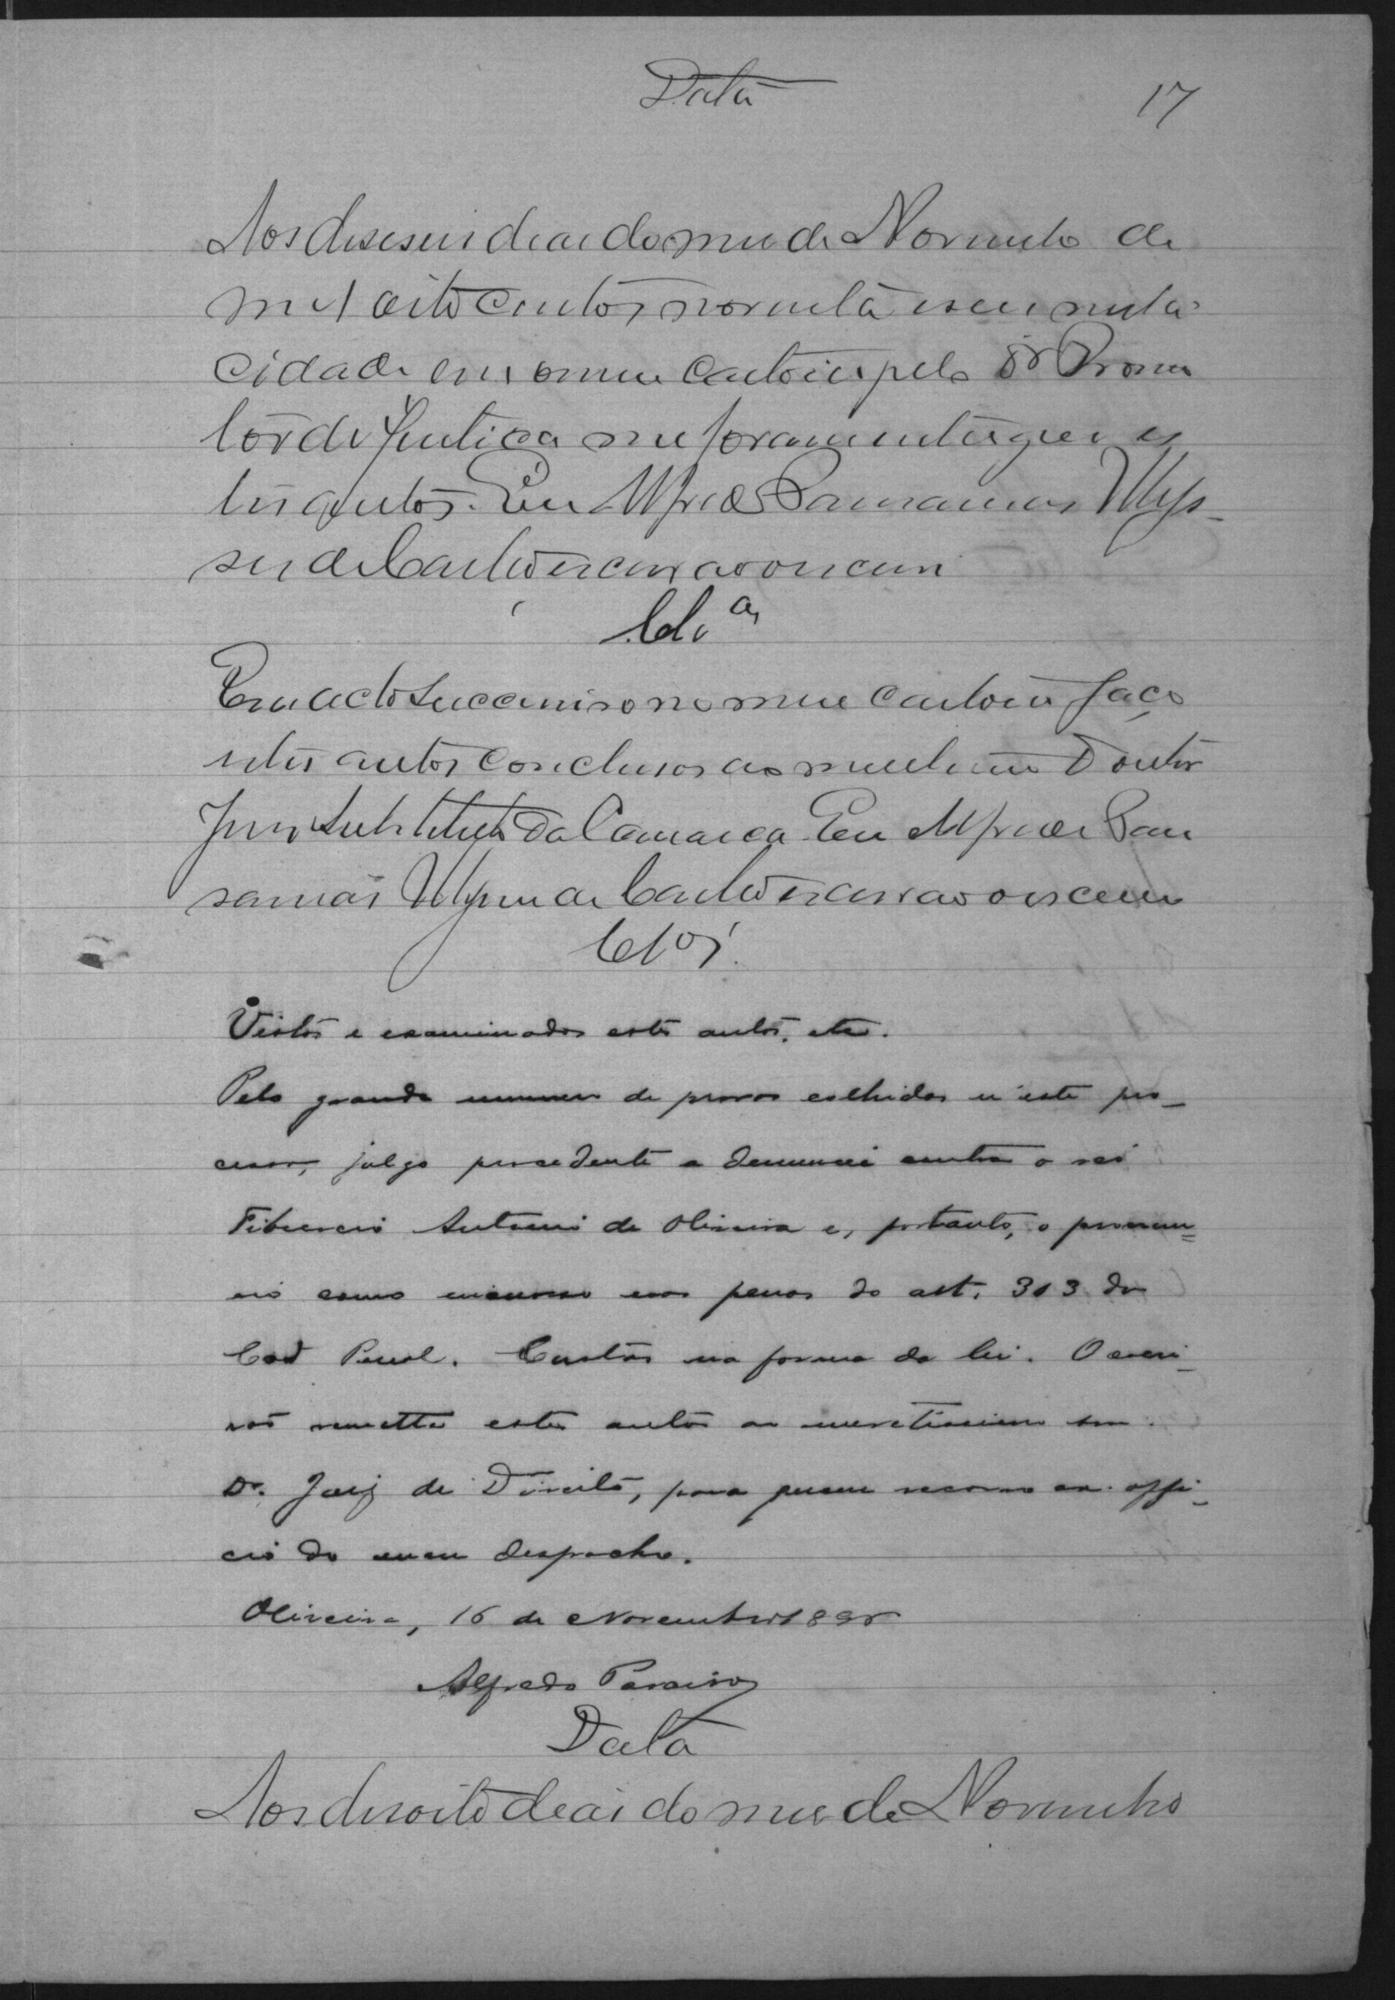 Data
17
Aos deseseis dias do mes de Novembro de
mil oito centos noventa e seis nesta
cidade em o meu cartorio pelo Dr Promo
tor de Justiça me foram entregues es
tes autos. Eu Alfredo Ulys
ses de Castro escrivão o escrevi
Cls.ª
Em acto succecivo no meu cartorio faço
estes autos conclusos ao meretissimo Doutor
Juiz Substituto da Comarca Eu Alfredo
Ulysses de Castro escrivão o escrevi
Clos.
Vistos e examinados estes autos, etc.
Pelo grande numero de provas colhidas n'este pro-
cesso, julgo procedente a denuncia contra o réo
Tiburcio Antonio de Oliveira e, portanto, o pronun=
cio como incurso nas penas do art. 303 do
Cod Penal. Custas na forma da lei. O escri-
vão remetta estes autos ao meretissimo snr.
Dr. Juiz de Direito, para quem recorro ex-offi-
cio do meu despacho.
Oliveira, 16 de Novembro 189
Alfredo Paraiso
Data
Aos desoito dias do mes de Novembro